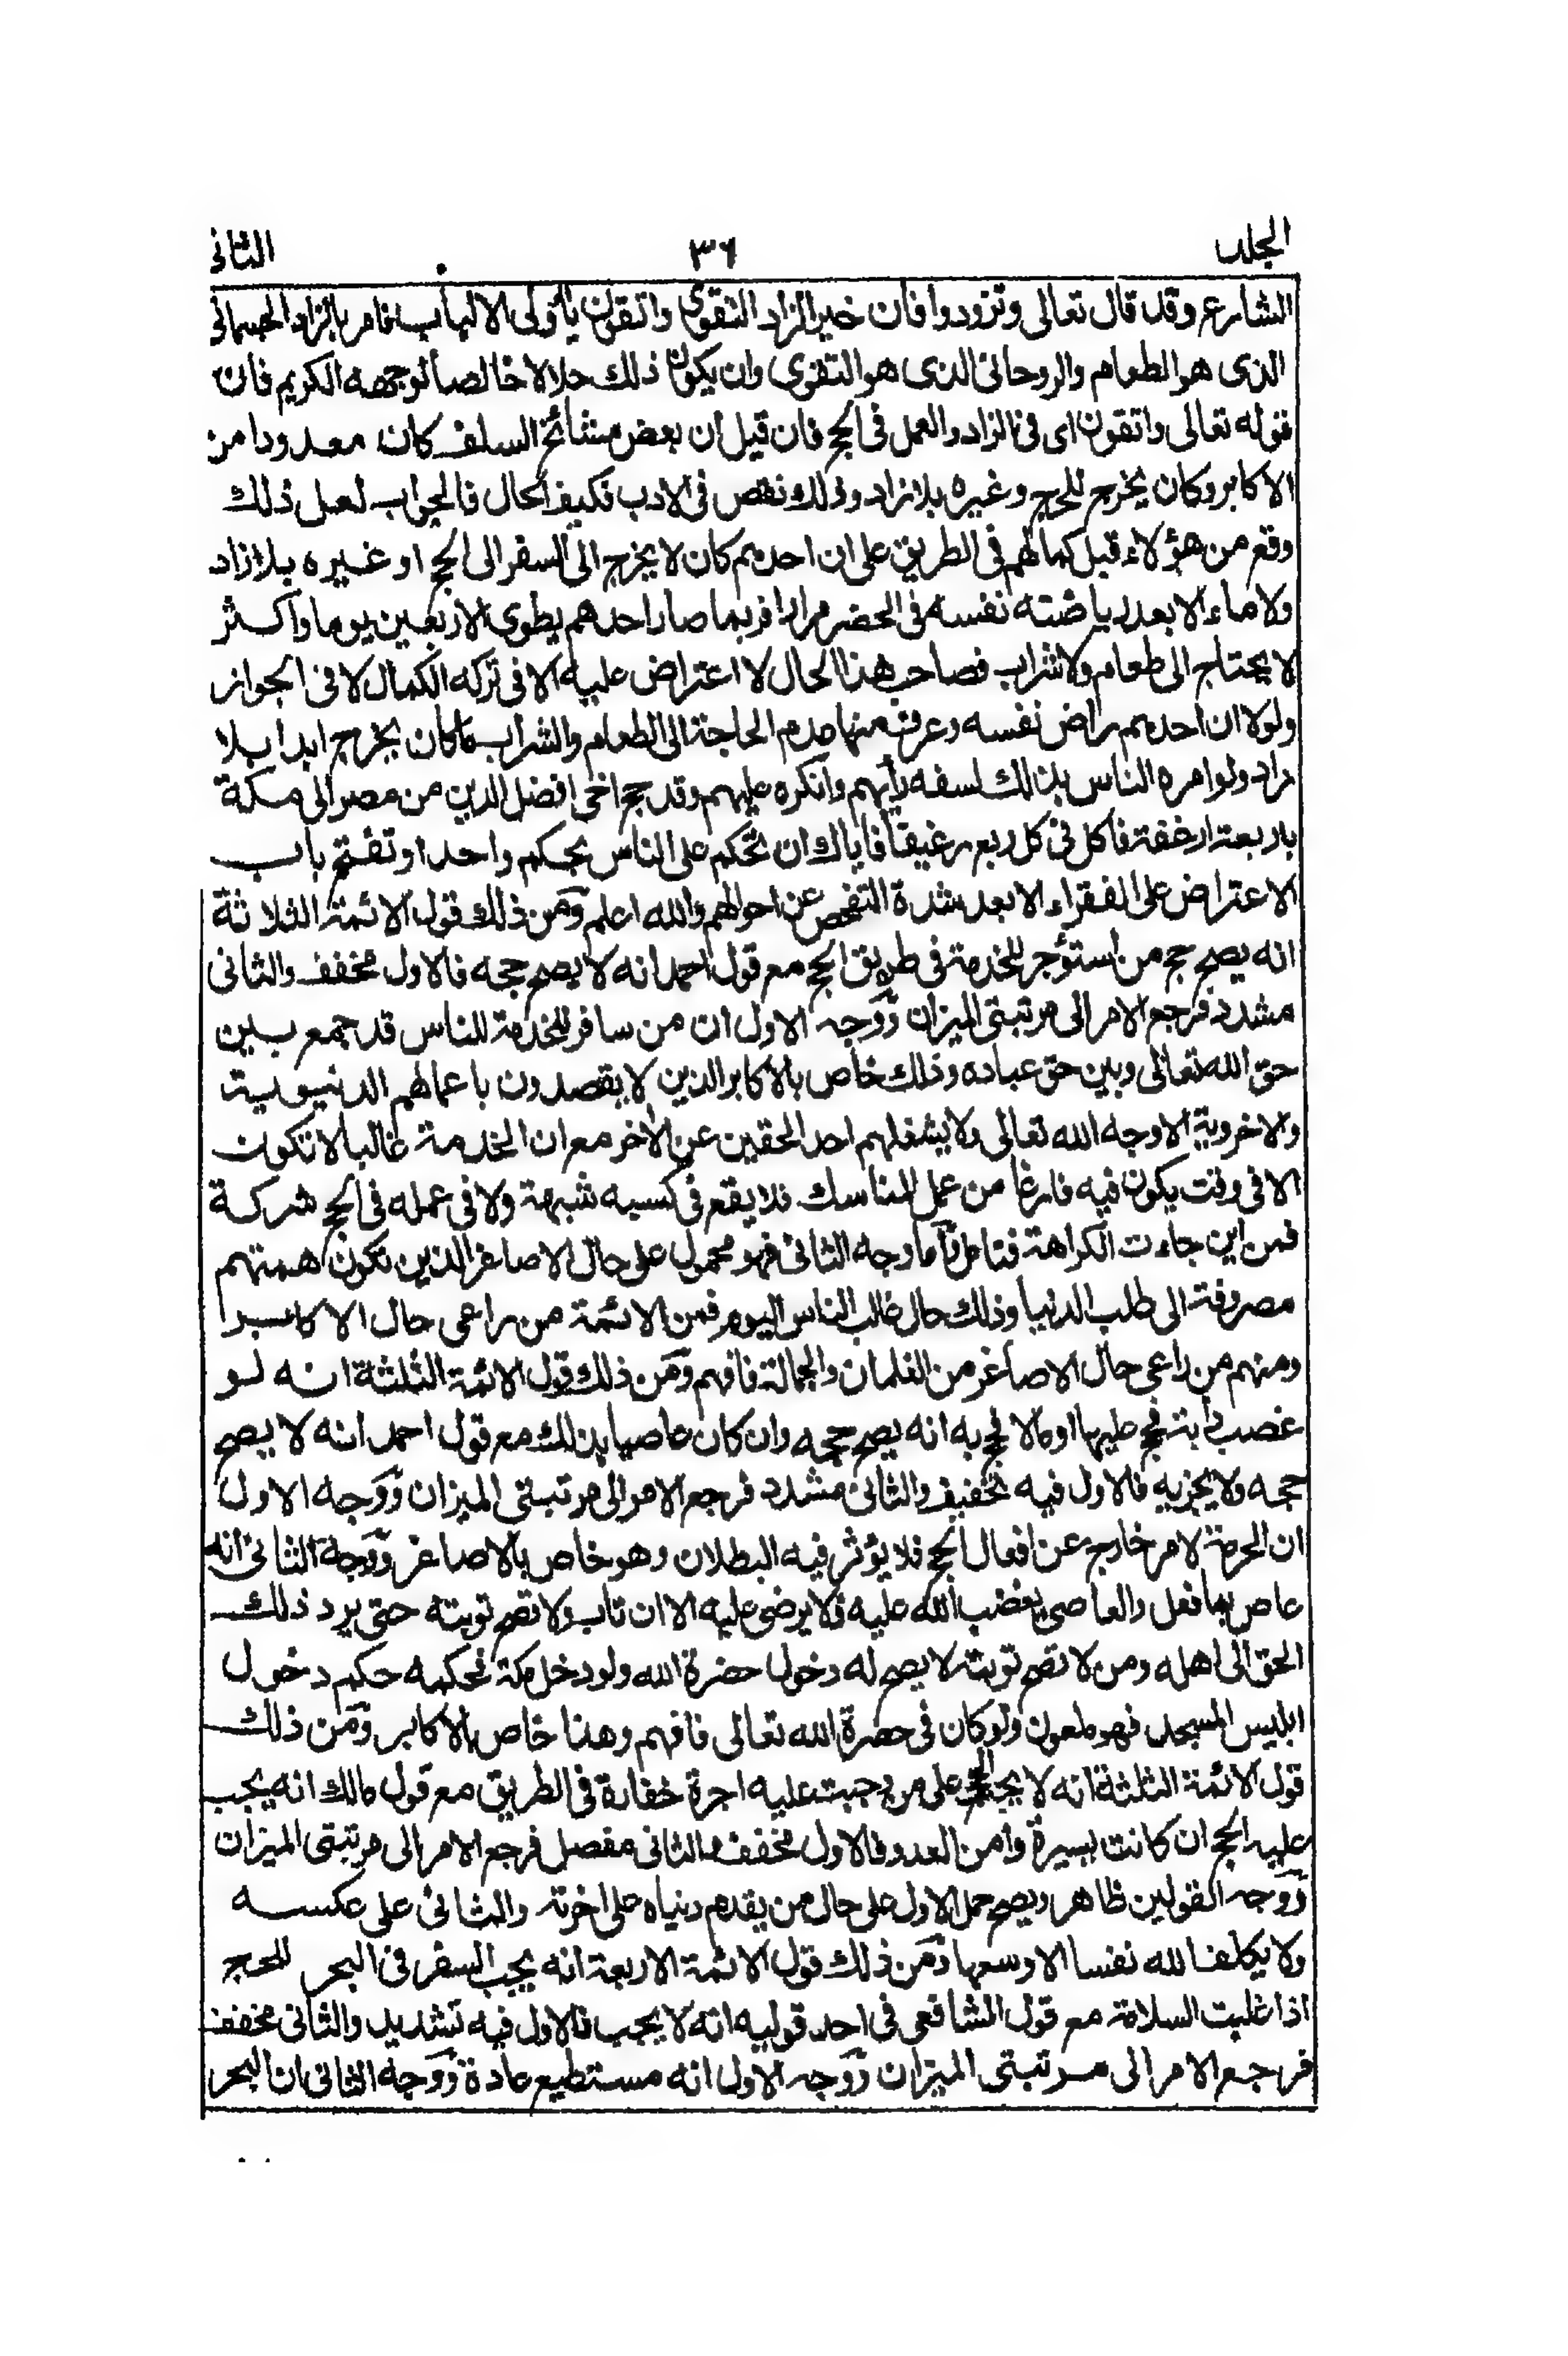 الجلد ٣٦ الثانى
الشارع وقد قال تعالى وتزودوا فان خير الزاد التقوى واتقون يا ولى الالباب فامر بالزاد الجسمانى
الذى هو الطعام والروحانى الذى هو التقوى وان يكون ذلك حلالا خالصا لوجهه الكريم فان
قوله تعالى واتقون اى فى الزاد والعمل فى الحج فان قيل ان بعض مشائخ السلف كان معدودا من
الاكابر وكان يخرج للحج وغيره بلا زاد وذلك نقص فى الادب فكيف الحال فالجواب لعل ذلك
وقع من هؤلاء قبل كمالهم فى الطريق على ان احدهم كان لا يخرج الى السفر الى الحج او غيره بلا زاد
ولا ماء الا بعد رياضته نفسه فى الحضر مرارا فربما صار احدهم يطوى الاربعين يوما واكثر
لا يحتاج الى طعام ولا شراب فصاحب هذا الحال لا اعتراض عليه الا فى تركه الكمال لا فى الجواز
ولولا ان احدهم راض نفسه وعرف منها عدم الحاجة الى الطعام والشراب ما كان يخرج ابدا بلا
زاد ولو امره الناس بذلك لسفه رأيهم وانكره عليهم وقد حج اخى افضل الدين من مصر الى مكة
باربعة ارغفة فاكل فى كل ربع رغيفا فاياك ان تحكم على الناس بحكم واحد او تفتح باب
الاعتراض على الفقراء الا بعد شدة التفحص عن احوالهم والله اعلم ومن ذلك قول الائمة الثلاثة
انه يصح حج من استؤجر للخدمة فى طريق الحج مع قول احمد انه لا يصح حجه فالاول مخفف والثانى
مشدد فرجع الامر الى مرتبتى الميزان ووجه الاول ان من سافر للخدمة للناس قد جمع بين
حق الله تعالى وبين حق عباده وذلك خاص بالاكابر الذين لا يقصدون باعمالهم الدنيوية
والاخروية الا وجه الله تعالى ولا يشغلهم احد الحقين عن الآخر مع ان الخدمة غالبا لا تكون
الا فى وقت يكون فيه فارغا من عمل المناسك فلا يقع فى كسبه شبهة ولا فى عمله فى الحج شركة
فمن اين جاءت الكراهة فتامل واما وجه الثانى فهو محمول على حال الاصاغر الذين تكون همتهم
مصروفة الى طلب الدنيا وذلك حال غالب الناس اليوم فمن الائمة من راعى حال الاكابر
ومنهم من راعى حال الاصاغر من الغلمان والجمالة فافهم ومن ذلك قول الائمة الثلثة انه لو
غصب دابة فحج عليها او مالا فحج به انه يصح حجه وان كان عاصيا بذلك مع قول احمد انه لا يصح
حجه ولا يجزيه فالاول فيه تخفيف والثانى مشدد فرجع الامر الى مرتبتى الميزان ووجه الاول
ان الحرمة لامر خارج عن افعال الحج فلا يؤثر فيه البطلان وهو خاص بالاصاغر ووجه الثانى انه
عاص بما فعل والعاصى يغضب الله عليه ولا يرضى عليه الا ان تاب ولا تصح توبته حتى يرد ذلك
الحق الى اهله ومن لا تصح توبته لا يصح له دخول حضرة الله ولو دخل مكة فحكمه حكم دخول
ابليس المسجد فهو ملعون ولو كان فى حضرة الله تعالى فافهم وهذا خاص بالاكابر ومن ذلك
قول الائمة الثلثة انه لا يجب الحج على من وجبت عليه اجرة خفارة فى الطريق مع قول مالك انه يجب
عليه الحج ان كانت يسيرة وأمن العدو فالاول مخفف والثانى مفصل فرجع الامر الى مرتبتى الميزان
ووجه القولين ظاهر ويصح حمل الاول على حال من يقدم دنياه على اخرته والثانى على عكسه
ولا يكلف الله نفسا الا وسعها ومن ذلك قول الائمة الاربعة انه يجب السفر فى البحر للحج
اذا غلبت السلامة مع قول الشافعى فى احد قوليه انه لا يجب فالاول فيه تشديد والثانى مخفف
فرجع الامر الى مرتبتى الميزان ووجه الاول انه مستطيع عادة ووجه الثانى ان البحر